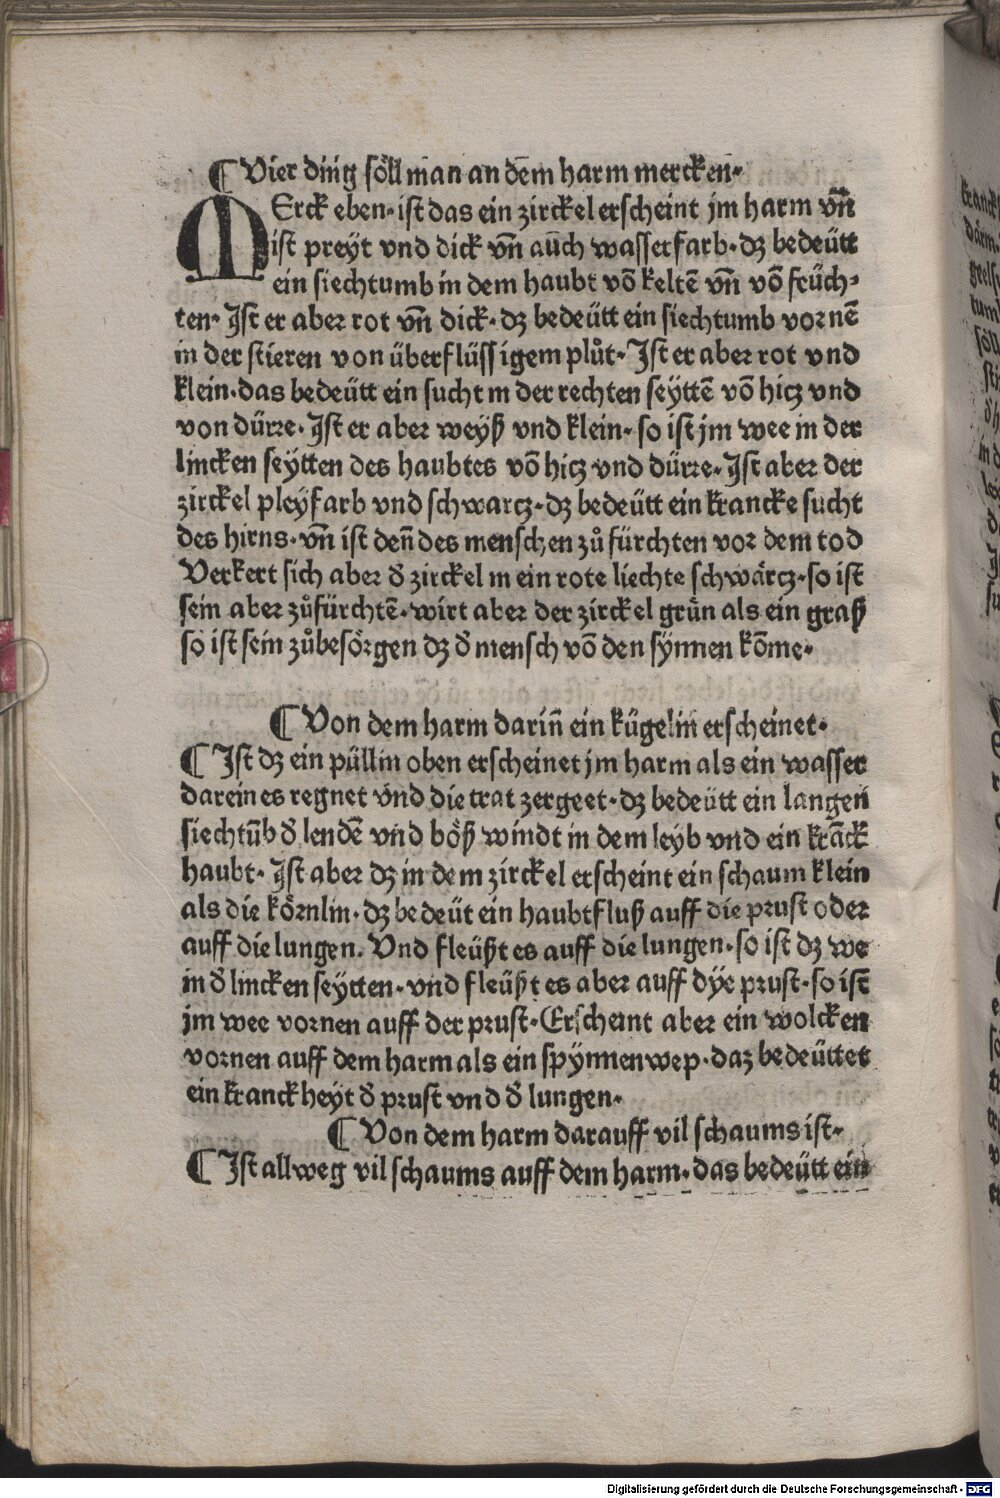 ¶ Vier ding söll man an dem harm mercken.
MErck eben. ist das ein zirckel erscheint jm harm vn̄
ist preyt vnd dick vn̄ auch wasserfarb. dz bedeütt
ein siechtumb in dem haubt vō keltē vn̄ vō feüch⸗
ten. Jst er aber rot vn̄ dick. dz bedeütt ein siechtumb vornē
in der stieren von überflüssigem plůt. Jst er aber rot vnd
klein. das bedeütt ein sucht in der rechten seyttē vō hitz vnd
von dürre. Jst er aber weyß vnd klein. so ist jm wee in der
lincken seytten des haubtes vō hitz vnd dürre. Jst aber der
zirckel pleyfarb vnd schwartz. dz bedeütt ein krancke sucht
des hirns. vn̄ ist den̄ des menschen zů fürchten vor dem tod
Verkert sich aber d̄ zirckel in ein rote liechte schwärtz. so ist
sein aber zůfürchtē. wirt aber der zirckel grün als ein graß
so ist sein zůbesörgen dz d̄ mensch vō den synnen kōme.
¶ Von dem harm darin̄ ein kügelin erscheinet.
¶ Jst dz ein püllin oben erscheinet jm harm als ein wasser
darein es regnet vnd die trat zergeet. dz bedeütt ein langen
siechtūb d̄ lendē vnd böß windt in dem leyb vnd ein krāck
haubt. Jst aber dz in dem zirckel erscheint ein schaum klein
als die körnlin. dz bedeüt ein haubtfluß auff die prust oder
auff die lungen. Vnd fleüßt es auff die lungen. so ist dz we
in d̄ lincken seytten. vnd fleüßt es aber auff dye prust. so ist
jm wee vornen auff der prust. Erscheint aber ein wolcken
vornen auff dem harm als ein spynnenwep. daz bedeüttet
ein kranckheyt d̄ prust vnd d̄ lungen.
¶ Von dem harm darauff vil schaums ist.
¶ Jst allweg vil schaums auff dem harm. das bedeütt ein
Digitalisierung gefördert durch die Deutsche Forschungsgemeinschaft - DFG